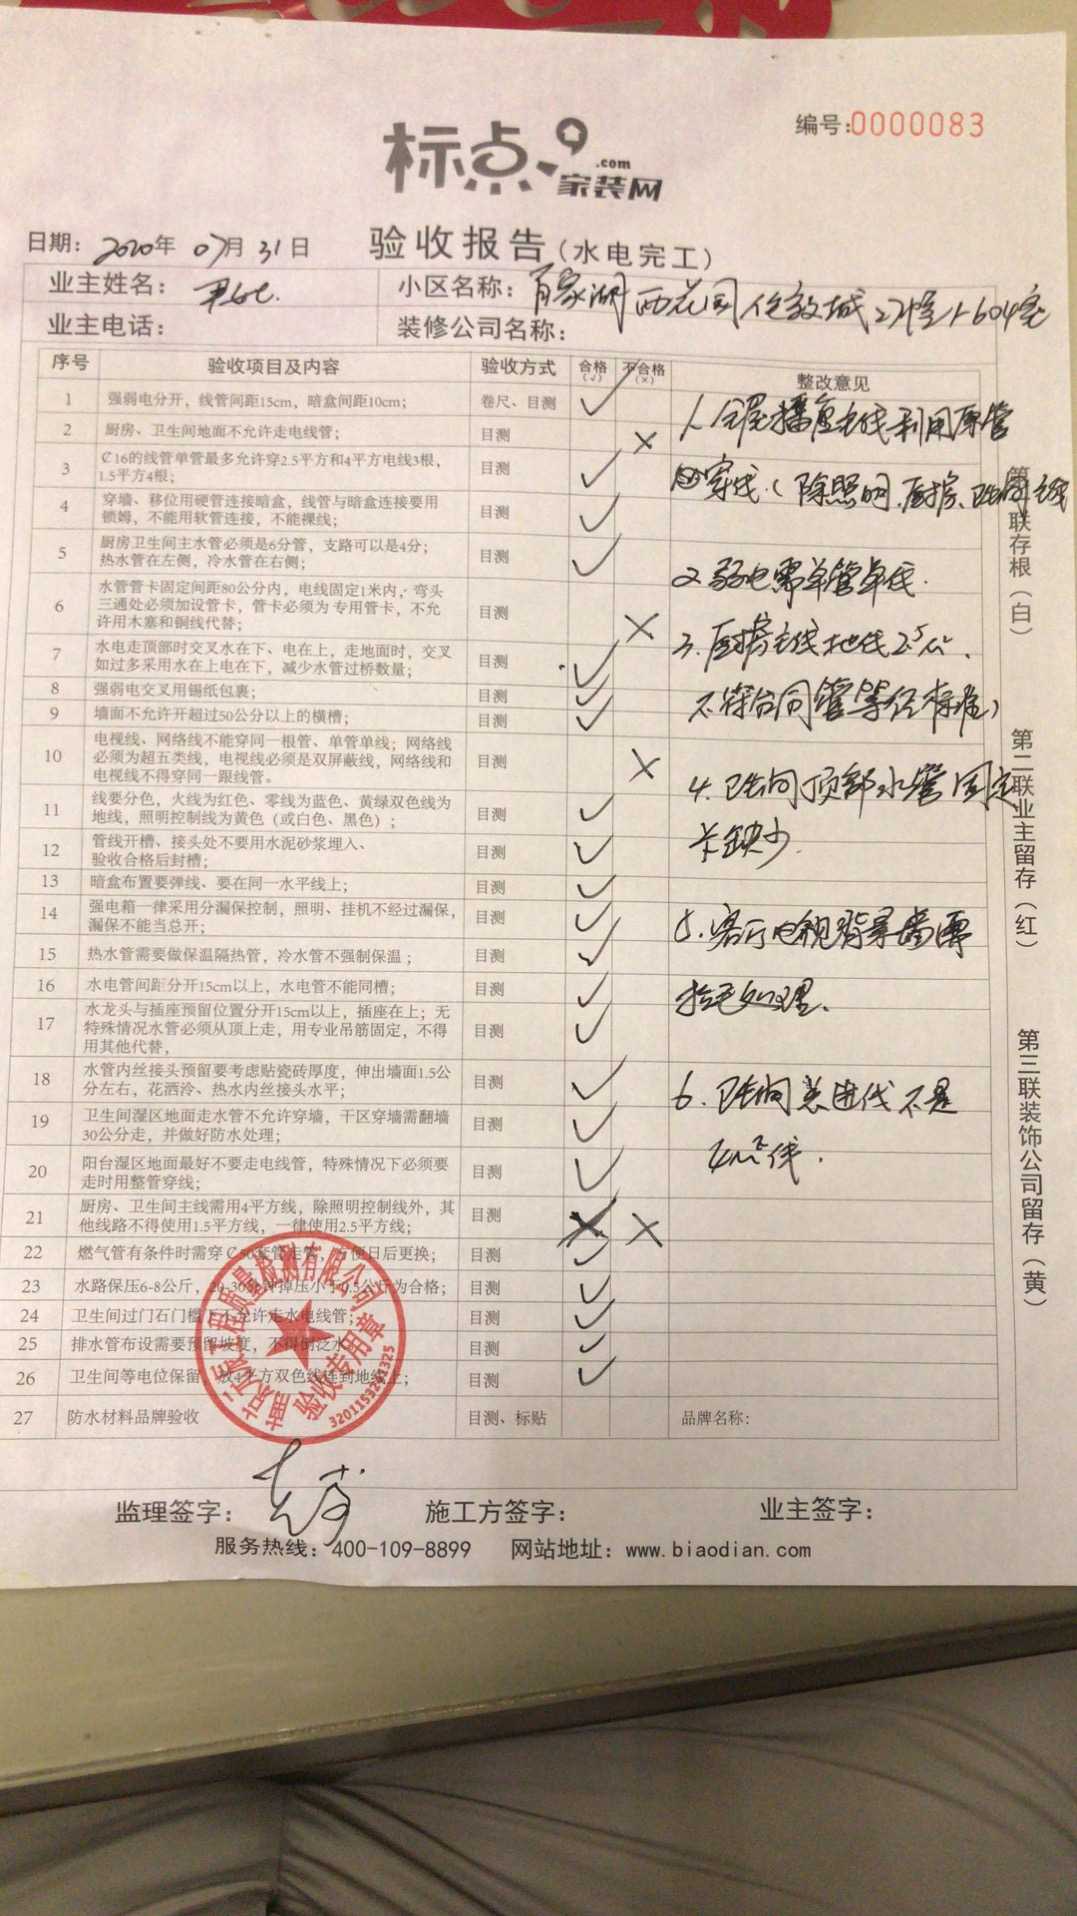 编号:0000083
标点
.com
家装网
日期: 2020年 07月 31日
验收报告(水电完工)
业主姓名:
小区名称: 西花园
业主电话:
装修公司名称:
序号 验收项目及内容 验收方式 合格(√) 不合格(×) 整改意见
1 强弱电分开,线管间距15cm,暗盒间距10cm; 卷尺、目测 √
2 厨房、卫生间地面不允许走电线管; 目测 ×
3 ₵16的线管单管最多允许穿2.5平方和4平方电线3根,
1.5平方4根; 目测 √
4 穿墙、移位用硬管连接暗盒,线管与暗盒连接要用
锁姆,不能用软管连接,不能裸线; 目测 √
5 厨房卫生间主水管必须是6分管,支路可以是4分;
热水管在左侧,冷水管在右侧; 目测 √
6 水管管卡固定间距80公分内,电线固定1米内,弯头
三通处必须加设管卡,管卡必须为专用管卡,不允
许用木塞和铜线代替; 目测 ×
7 水电走顶部时交叉水在下、电在上,走地面时,交叉
如过多采用水在上电在下,减少水管过桥数量; 目测 √
8 强弱电交叉用锡纸包裹; 目测 √
9 墙面不允许开超过50公分以上的横槽; 目测 √
10 电视线、网络线不能穿同一根管、单管单线;网络线
必须为超五类线,电视线必须是双屏蔽线,网络线和
电视线不得穿同一跟线管。 目测 ×
11 线要分色,火线为红色、零线为蓝色、黄绿双色线为
地线,照明控制线为黄色(或白色、黑色); 目测 √
12 管线开槽、接头处不要用水泥砂浆埋入、
验收合格后封槽; 目测 √
13 暗盒布置要弹线、要在同一水平线上; 目测 √
14 强电箱一律采用分漏保控制,照明、挂机不经过漏保,
漏保不能当总开; 目测 √
15 热水管需要做保温隔热管,冷水管不强制保温; 目测 √
16 水电管间距分开15cm以上,水电管不能同槽; 目测 √
17 水龙头与插座预留位置分开15cm以上,插座在上;无
特殊情况水管必须从顶上走,用专业吊筋固定,不得
用其他代替, 目测 √
18 水管内丝接头预留要考虑贴瓷砖厚度,伸出墙面1.5公
分左右,花洒冷、热水内丝接头水平; 目测 √
19 卫生间湿区地面走水管不允许穿墙,干区穿墙需翻墙
30公分走,并做好防水处理; 目测 √
20 阳台湿区地面最好不要走电线管,特殊情况下必须要
走时用整管穿线; 目测 √
21 厨房、卫生间主线需用4平方线,除照明控制线外,其
他线路不得使用1.5平方线,一律使用2.5平方线; 目测 ×
22 燃气管有条件时需穿₵50套管走管,方便日后更换; 目测 √
23 水路保压6-8公斤,20-30分钟掉压小于0.5公斤为合格; 目测 √
24 卫生间过门石门槛下不允许走水电线管; 目测 √
25 排水管布设需要预留坡度,不得倒泛水 目测 √
26 卫生间等电位保留,放4平方双色线连到地线上; 目测 √
27 防水材料品牌验收 目测、标贴 品牌名称:
利用原管
穿线.(除照明.厨房.卫生间主线
2.弱电需单管单线.
3.厨房主线地线2.5
4.卫生间顶部水管固定
卡缺少.
5.客厅电视背景墙需
拉毛处理.
6.卫生间总进线不是
4m²线.
第一联存根(白)
第二联业主留存(红)
第三联装饰公司留存(黄)
验收专用章
监理签字:
施工方签字:
业主签字:
服务热线:400-109-8899 网站地址:www.biaodian.com